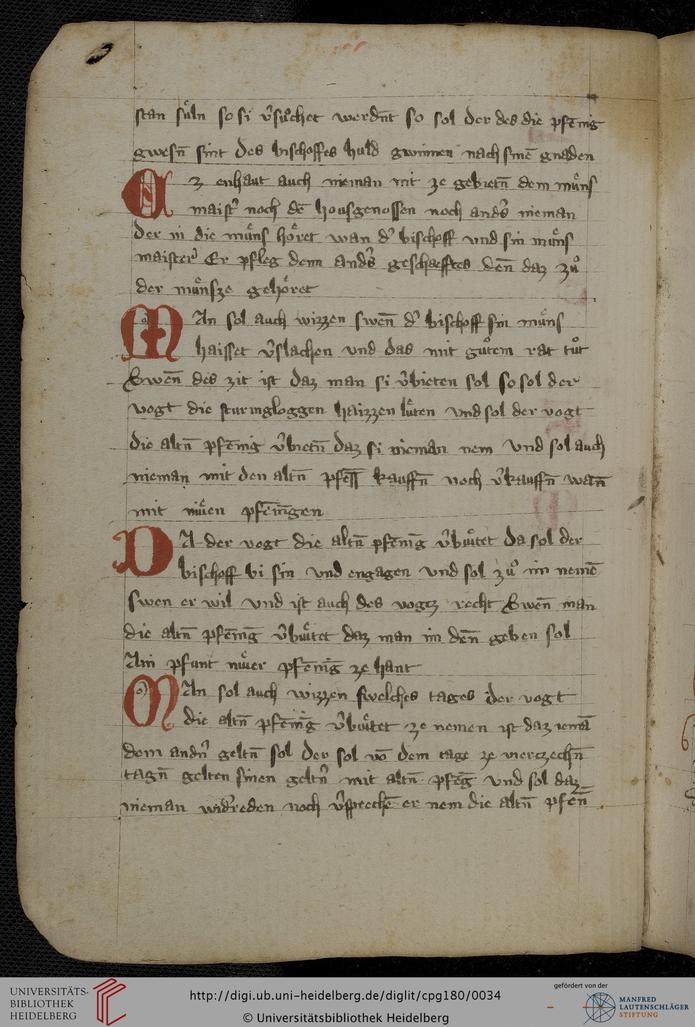 stan suͤln so si v̉suͦchet werdn̄t so sol der des die pfēnig
gwesn̄ sint des bischoffes huld gwinnen nach sinē gnaden
Ez enhaut auch nieman nit ze gebietn̄ dem muͤns
maist̉ noch dē housgenossen noch and̉s nieman
der in die muͤns hoͤret wan d̉ bischoff und sin muͤns
maister Er pfleg denn and̉s geschaefftes denn̄ daz zuͦ
der muͤnsze gehoͤret
Man sol auch wizzen swen̄ d̉ bischoff sin muͤns
haisset v̉slachen und das mit guͦtem rat tuͦt
Swen̄ des zit ist daz man si v̉bieten sol so sol der
vogt die sturmgloggen haizzen luͤten und sol der vogt
die altn̄ pfēnig v̉bietn̄ daz si nieman nem und sol auch
nieman mit den altn̄ pfēn̄ kauffn̄ noch v̉kauffn̄ wan̄
mit niuͤen pfen̄ingen
Da der vogt die altn̄ pfēnig v̉buͤtet da sol der
bischoff bi sin und engagen und sol zuͦ im nemē
swen er wil und ist auch des vogtz recht Swen̄ man
die altn̄ pfēnig v̉buͤtet daz man im den̄ geben sol
Ain pfunt nuͤer pfēnig ze hant
Man sol auch wizzen swelches tages der vogt
die altn̄ pfēnig v̉buͤtet ze nemen ist daz iemā
dem andn̉ geltn̄ sol der sol vō dem tage ze vierzechn̄
tagn̄ gelten sinen geltn̉ mit altn̄ pfēg und sol daz
nieman wid̉reden noch v̉sprechē er nem die altn̄ pfen̄
UNIVERSITÄTS-
BIBLIOTHEK
HEIDELBERG
http://digi.ub.uni-heidelberg.de/diglit/cpg180/0034
© Universitätsbibliothek Heidelberg
gefördert von der
MANFRED
LAUTENSCHLÄGER
STIFTUNG